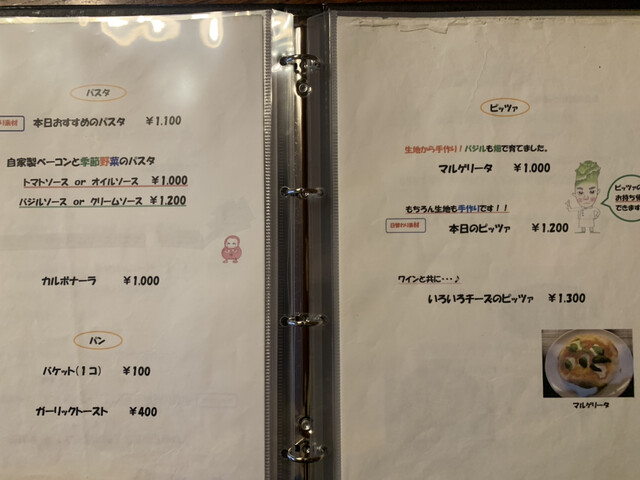 パスタ
本日おすすめのパスタ ￥1.100
自家製ベーコンと季節野菜のパスタ
トマトソース or オイルソース ￥1.000
バジルソース or クリームソース ￥1.200
カルボナーラ ￥1.000
パン
バケット(1コ) ￥100
ガーリックトースト ￥400
ピッツァ
生地から手作り！バジルも畑で育てました。
マルゲリータ ￥1.000
もちろん生地も手作りです！！
日替わり素材
本日のピッツァ ￥1.200
ピッツァの
お持ち帰
できます
ワインと共に・・・♪
いろいろチーズのピッツァ ￥1.300
マルゲリータ